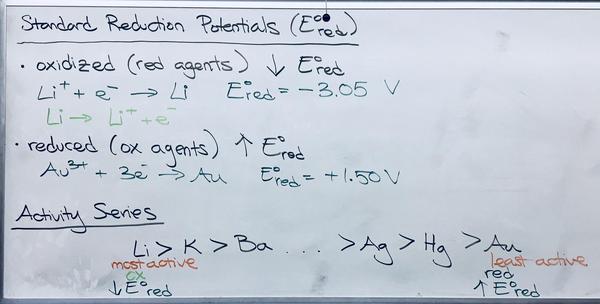 Standard Reduction Potentials (E°red)
• oxidized (red agents) ↓ E°red
Li⁺ + e⁻ → Li E°red = -3.05 V
Li → Li⁺ + e⁻
• reduced (ox agents) ↑ E°red
Au³⁺ + 3e⁻ → Au E°red = +1.50 V
Activity Series
Li > K > Ba . . . . > Ag > Hg > Au
most active least active
ox red
↓ E°red ↑ E°red